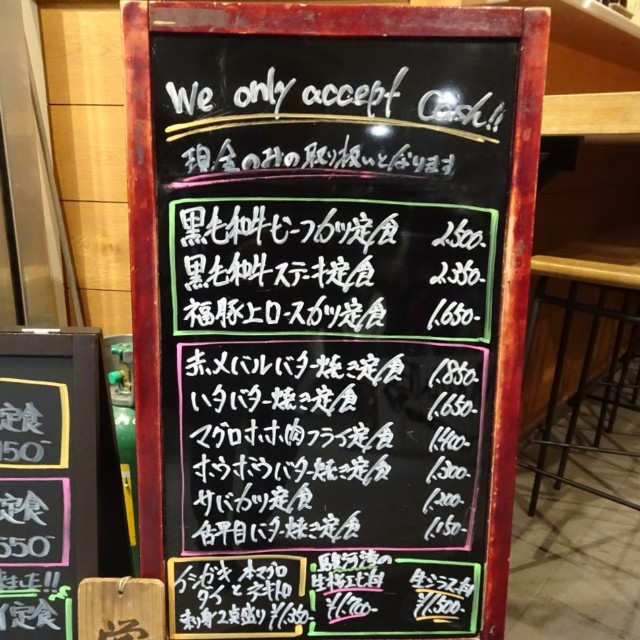 We only accept Cash!!
現金のみの取り扱いとなります
黒毛和牛ビーフカツ定食 2,500-
黒毛和牛ステーキ定食 2,350-
福豚上ロースカツ定食 1,650-
赤メバルバター焼き定食 1,850-
いタバター焼き定食 1,650-
マグロホホ肉フライ定食 1,400-
ホウボウバター焼き定食 1,300-
サバカツ定食 1,200-
舌平目バター焼き定食 1,150-
イシガキ 本マグロ
タイ と 中トロ
刺身2点盛り ¥1,350-
駿河湾の
生桜エビ丼
¥1,700-
生シラス丼
¥1,500-
定食
150-
定食
550-
ました!!
定食